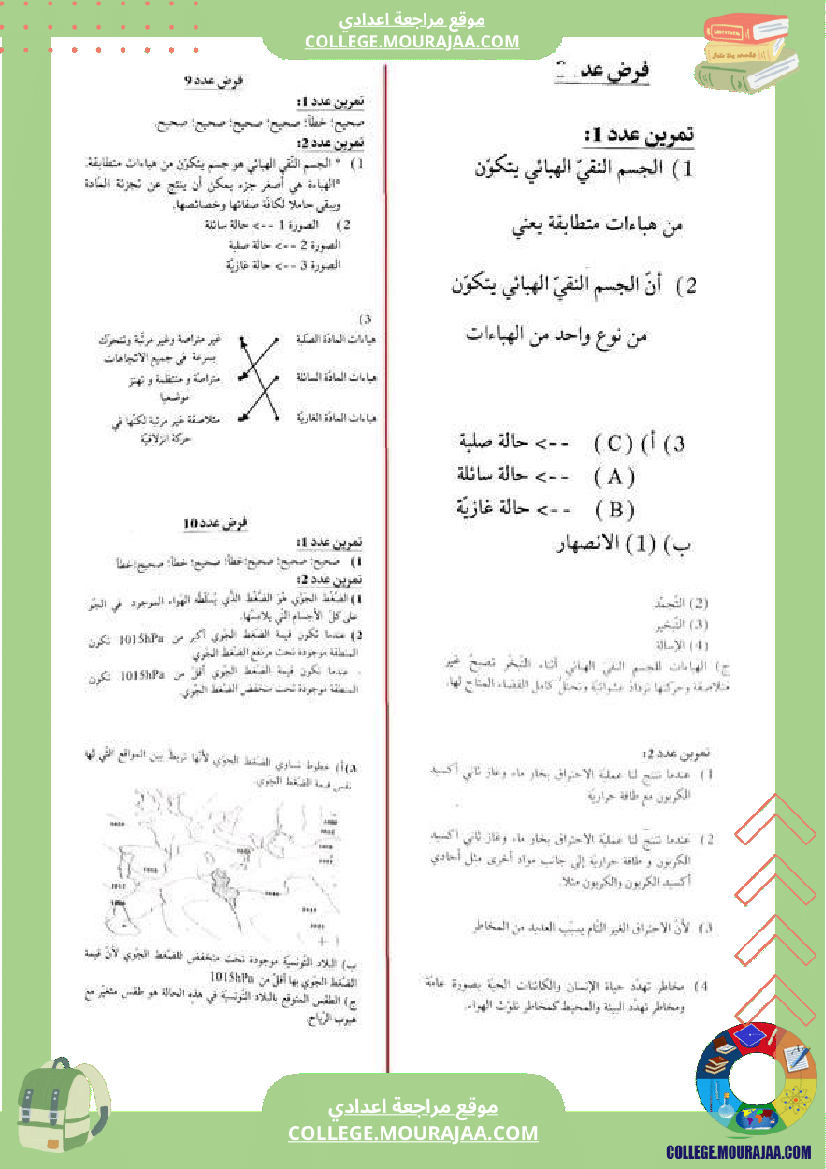 موقع مراجعة اعدادي
COLLEGE.MOURAJAA.COM
فرض عدد
تمرين عدد 1:
1) الجسم النقيّ الهبائي يتكوّن
من هباءات متطابقة يعني
2) أنّ الجسم النقيّ الهبائي يتكوّن
من نوع واحد من الهباءات
3) أ) (C) --> حالة صلبة
(A) --> حالة سائلة
(B) --> حالة غازيّة
ب) (1) الانصهار
(2) التجمّد
(3) التبخير
(4) الإسالة
ج) الهباءات للجسم النقيّ الهبائي أثناء التبخّر تصبح غير
متلاصقة وحركتها تزداد عشوائيّة وتحتلّ كامل الفضاء المتاح لها.
تمرين عدد 2:
1) عندما تنتج لنا عمليّة الاحتراق بخار ماء وغاز ثاني أكسيد
الكربون مع طاقة حراريّة
2) عندما تنتج لنا عمليّة الاحتراق بخار ماء وغاز ثاني أكسيد
الكربون و طاقة حراريّة إلى جانب مواد أخرى مثل أحادي
أكسيد الكربون والكربون مثلا.
3) لأنّ الاحتراق الغير التّام يسبّب العديد من المخاطر
4) مخاطر تهدّد حياة الإنسان والكائنات الحيّة بصورة عامّة
ومخاطر تهدّد البيئة والمحيط كمخاطر تلوّث الهواء.
فرض عدد 9
تمرين عدد 1:
صحيح؛ خطأ؛ صحيح؛ صحيح؛ صحيح؛ صحيح.
تمرين عدد 2:
1) * الجسم النّقي الهبائي هو جسم يتكوّن من هباءات متطابقة.
*الهباءة هي أصغر جزء يمكن أن ينتج عن تجزئة المادة
ويبقى حاملا لكافّة صفاتها وخصائصها.
2) الصورة 1 --> حالة سائلة
الصورة 2 --> حالة صلبة
الصورة 3 --> حالة غازيّة
3)
هباءات المادّة الصّلبة
غير متراصة وغير مرتّبة وتتحرّك
بسرعة في جميع الاتجاهات
هباءات المادّة السائلة
متراصّة و منتظمة و تهتز
موضعيا
هباءات المادّة الغازيّة
متلاصقة غير مرتبة لكنّها في
حركة انزلاقيّة
فرض عدد 10
تمرين عدد 1:
1) صحيح؛ صحيح؛ صحيح؛خطأ؛ صحيح؛ خطأ؛ صحيح؛خطأ
تمرين عدد 2:
1) الضّغط الجوّي هو الضّغط الّذي يُسلّطه الهواء الموجود في الجوّ
على كلّ الأجسام التّي يلامسها.
2) عندما تكون قيمة الضغط الجوي أكبر من 1015hPa تكون
المنطقة موجودة تحت مرتفع الضّغط الجوّي
- عندما تكون قيمة الضغط الجوّي أقلّ من 1015hPa تكون
المنطقة موجودة تحت منخفض الضّغط الجوّي.
3) أ) خطوط تساوي الضغط الجوّي لأنّها تربط بين المواقع التّي لها
نفس قيمة الضّغط الجوّي.
ب) البلاد التّونسيّة موجودة تحت منخفض للضّغط الجوّي لأنّ قيمة
الضّغط الجوّي بها أقلّ من 1015hPa
ج) الطقس المتوقع بالبلاد التّونسيّة في هذه الحالة هو طقس متغيّر مع
هبوب الرّياح.
موقع مراجعة اعدادي
COLLEGE.MOURAJAA.COM
COLLEGE.MOURAJAA.COM